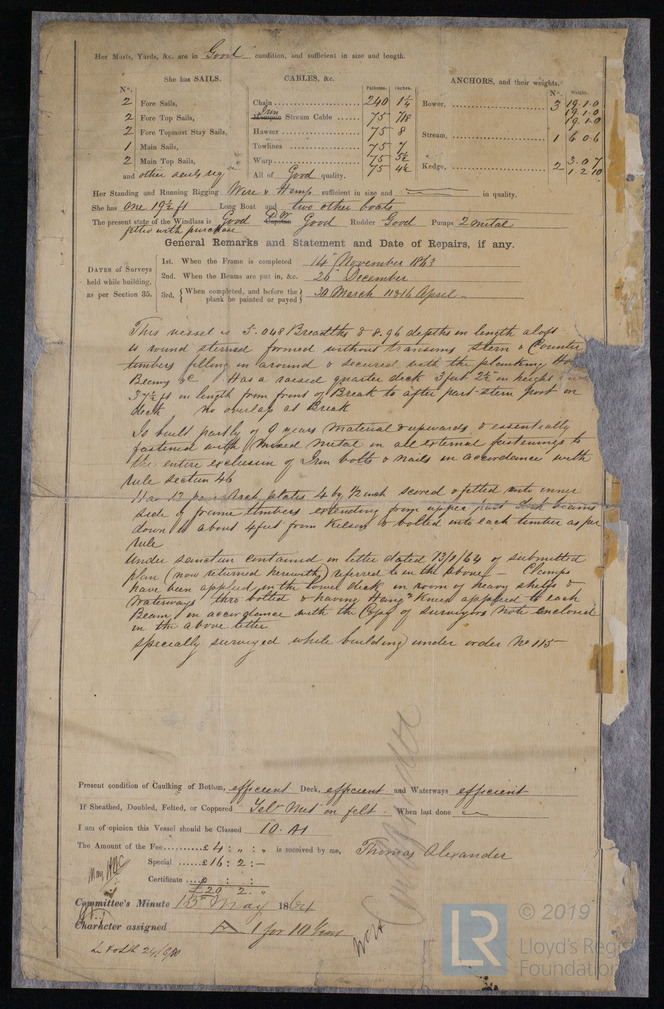 Her Masts, Yards, &c. are in Good condition, and sufficient in size and length.
She has SAILS.
CABLES, &c.
ANCHORS, and their weights.
N°.
Fathoms. Inches.
N°. Weight.
2 Fore Sails,
2 Fore Top Sails,
2 Fore Topmast Stay Sails,
1 Main Sails,
2 Main Top Sails,
and other sails
Chain 240 1¼
Iron Stream Cable 75 7/8
Hawser 75 8
Towlines 75 7
Warp 75 5½
75 4½
All of Good quality.
Bower, 3 19.1.0
19.1.0
19.1.0
Stream, 1 6.0.6
Kedge, 2 3.0.7
1.2.10
Her Standing and Running Rigging Wire & Hemp sufficient in size and in quality.
She has one 19½ ft Long Boat and two other boats
The present state of the Windlass is Good Capstan Good Rudder Good Pumps 2 metal
fitted with purchase
General Remarks and Statement and Date of Repairs, if any.
DATES of Surveys
held while building,
as per Section 35.
1st. When the Frame is completed 14th November 1863
2nd. When the Beams are put in, &c. 26 December
3rd. When completed, and before the plank be painted or payed 30 March 1864 16 April
This vessel is 5.048 Breadths & 8.96 depths in length aloft
is round sterned formed without transoms stern & Counter
timbers filling in around & secured with the planking
Beams &c Has a raised quarter deck 3 feet 2½ in height
37½ ft in length from front of Break to after part stern post on
deck no overlap at Break
Is built partly of 9 years Material & upwards & essentially
fastened with Mixed Metal in all external fastenings to
the entire exclusion of Iron bolts & nails in accordance with
rule section 46
Has 12 pairs plates 4 by ½ inch scored & fitted into inner
side of frame timbers extending from upper part beams
down to about 4 feet from Kelson & bolted into each timber as per
rule
Under sanction contained in letter dated 13/1/64 & submitted
plan (now returned herewith) referred to in the above Clamps
have been applied in the lower deck in room of heavy shelfs &
Waterways thro bolted & having Hang'g Knees applied to each
Beam in accordance with the Copy of surveyors note enclosed
in the above letter
specially surveyed while building under order No 115
Present condition of Caulking of Bottom, efficient Deck, efficient and Waterways efficient
If Sheathed, Doubled, Felted, or Coppered Felt Met on felt. When last done
I am of opinion this Vessel should be Classed 10. A1
The Amount of the Fee £4 : „ : „ is received by me, Thomas Alexander
Special £16 : 2 : –
Certificate £ : :
£20 2 „
Committee's Minute 13th May 1864
Character assigned A 1 for 10 Years
© 2019
LR
Lloyd's Register
Foundation